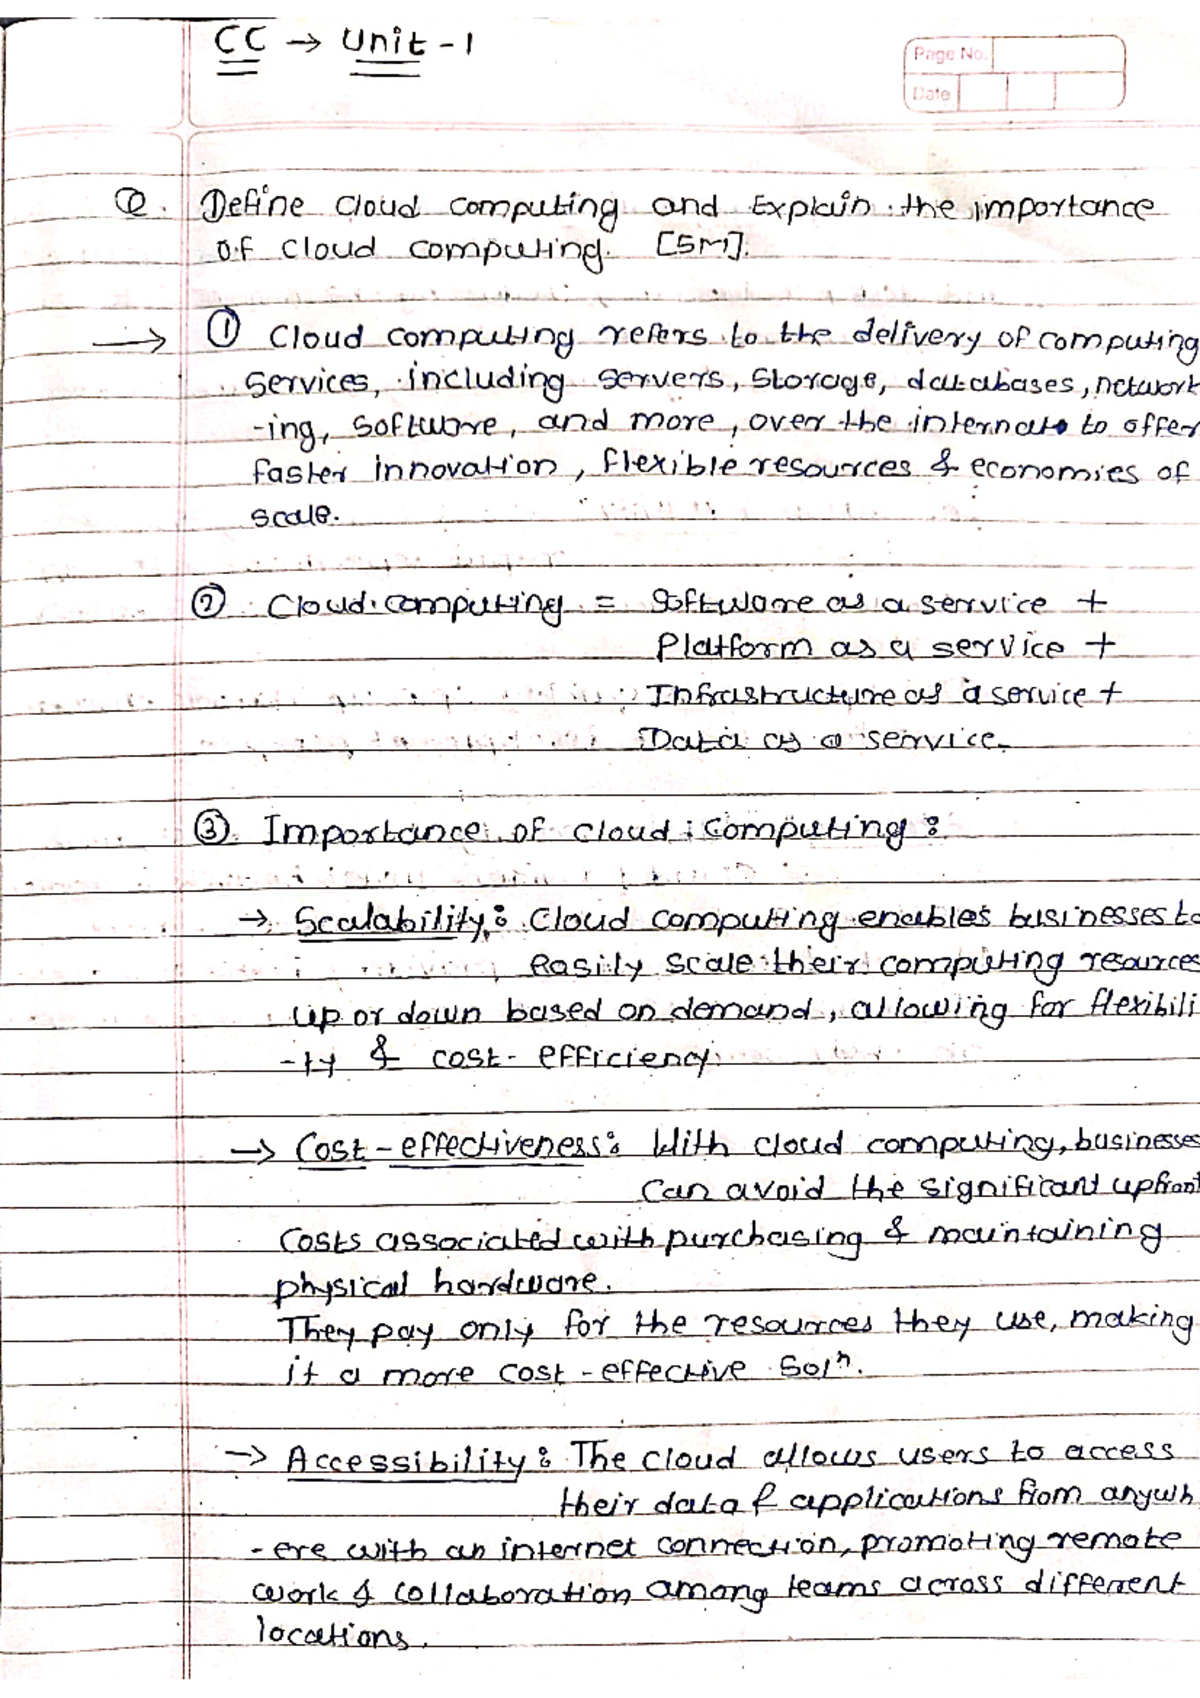 CC → Unit - 1
Page No.
Date
Q. Define cloud computing and Explain the importance
of cloud computing. [5M].
→ ① Cloud computing refers to the delivery of computing
services, including servers, storage, databases, network
-ing, software, and more, over the internet to offer
faster innovation, flexible resources & economies of
scale.
② Cloud computing = Software as a service +
Platform as a service +
Infrastructure as a service +
Data as a service.
③ Importance of cloud computing :
→ Scalability : Cloud computing enables businesses to
easily scale their computing resources
up or down based on demand, allowing for flexibili
-ty & cost - efficiency.
→ Cost - effectiveness : With cloud computing, businesses
can avoid the significant upfront
costs associated with purchasing & maintaining
physical hardware.
They pay only for the resources they use, making
it a more cost - effective solⁿ.
→ Accessibility : The cloud allows users to access
their data & applications from anywh
- ere with an internet connection, promoting remote
work & collaboration among teams across different
locations.